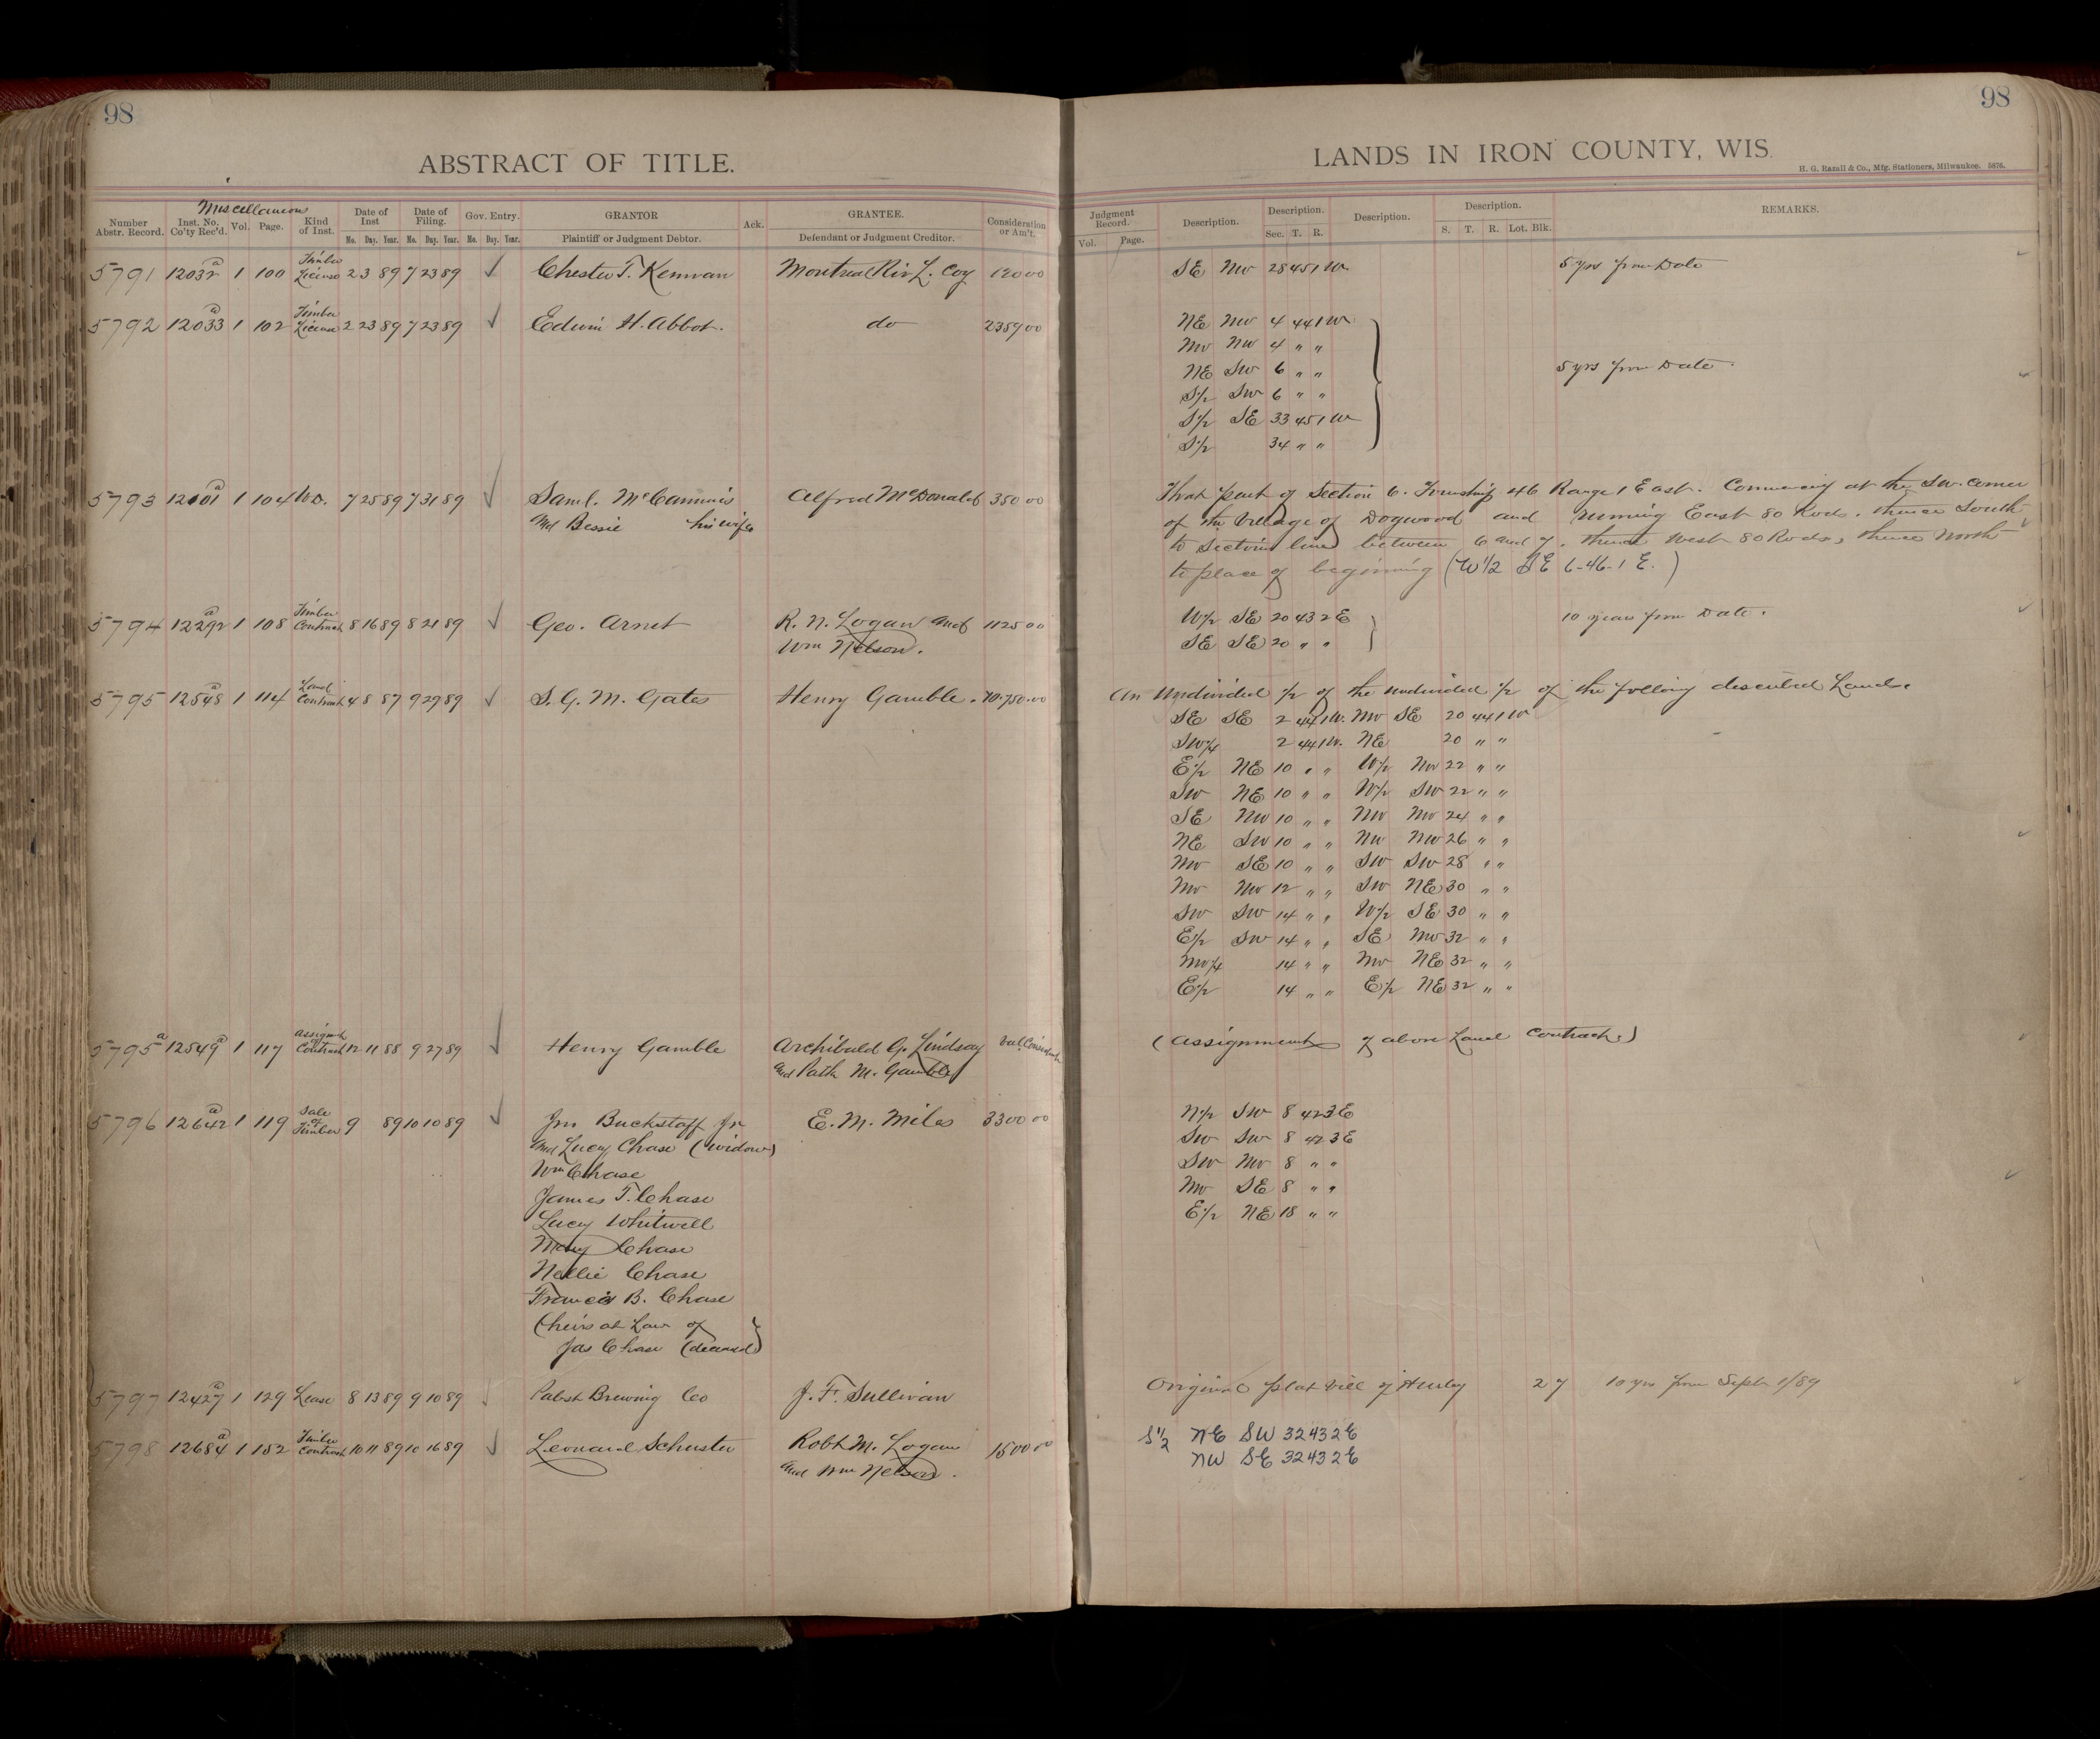 98
ABSTRACT OF TITLE.
Miscellaneous
Number Abstr. Record. Inst. No. Co'ty Rec'd. Vol. Page. Kind of Inst. Date of Inst Mo. Day. Year. Date of Filing. Mo. Day. Year. Gov. Entry. Mo. Day. Year. GRANTOR Plaintiff or Judgment Debtor. Ack. GRANTEE. Defendant or Judgment Creditor. Consideration or Am't.
5791 12032 a 1 100 Timber License 2 3 89 7 23 89 ✓ Chester T. Kennan Montreal Riv L. Coy 120 00
5792 12033 a 1 102 Timber License 2 23 89 7 23 89 ✓ Edwin H. Abbot. do 2359 00
5793 12101 a 1 104 W.D. 7 25 89 7 31 89 ✓ Saml. McCammis Alfred McDonald 350 00
and Bessie his wife
5794 12292 a 1 108 Timber Contract 8 16 89 8 21 89 ✓ Geo. Arnet R. N. Logan and 1125 00
Wm Nelson.
5795 12548 a 1 114 Land Contract 4 8 87 9 29 89 ✓ S. G. M. Gates Henry Gamble. 70.750.00
5795 a 12549 a 1 117 Assignmt of Contract 12 11 88 9 27 89 ✓ Henry Gamble Archibald G. Lindsay Val. Considerate
and Path M. Gamble
5796 12642 a 1 119 Sale of Timber 9 89 10 10 89 ✓ Jno Buckstaff Jr E. M. Miles 3300 00
and Lucy Chase (widow)
Wm Chase
James T. Chase
Lucy Whitwell
Mary Chase
Nellie Chase
Francis B. Chase
(heirs at Law of
Jas Chase (deceased)
5797 12427 a 1 129 Lease 8 13 89 9 10 89 ✓ Pabst Brewing Co J. F. Sullivan
5798 12684 a 1 132 Timber Contract 10 11 89 10 16 89 ✓ Leonard Schuster Robt M. Logan 1500 00
and Wm Nelson.
98
LANDS IN IRON COUNTY, WIS.
H. G. Razall & Co., Mfg. Stationers, Milwaukee. 5876.
Judgment Record. Vol. Page. Description. Description. Sec. T. R. Description. Description. S. T. R. Lot. Blk. REMARKS.
SE NW 28 45 1 W 5 yrs from Date
NE NW 4 44 1 W
NW NW 4 " "
NE SW 6 " " 5 yrs from Date
S 1/2 SW 6 " "
S 1/2 SE 33 45 1 W
S 1/2 34 " "
That part of Section 6. Township 46 Range 1 East. Commencing at the SW. Corner
of the Village of Dogwood and running East 80 Rods. thence South
to Section line between 6 and 7. thence West 80 Rods, thence North
to place of beginning (W 1/2 SE 6-46-1 E.)
W 1/2 SE 20 43 2 E 10 years from Date.
SE SE 20 " "
An Undivided 1/2 of the undivided 1/2 of the following described Lands.
SE SE 2 44 1 W. NW SE 20 44 1 W
SW 1/4 2 44 1 W. NE 20 " "
E 1/2 NE 10 " " W 1/2 NW 22 " "
SW NE 10 " " W 1/2 SW 22 " "
SE NW 10 " " NW NW 24 " "
NE SW 10 " " NW NW 26 " "
NW SE 10 " " SW SW 28 " "
NW NW 12 " " SW NE 30 " "
SW SW 14 " " W 1/2 SE 30 " "
E 1/2 SW 14 " " SE NW 32 " "
NW 1/4 14 " " NW NE 32 " "
E 1/2 14 " " E 1/2 NE 32 " "
(Assignment of above Land Contract.)
N 1/2 SW 8 42 3 E
SW SW 8 42 3 E
SW NW 8 " "
NW SE 8 " "
E 1/2 NE 18 " "
Original plat Vill of Hurley 2 7 10 yrs from Sept 1/89
S 1/2 NE SW 32 43 2 E
NW SE 32 43 2 E